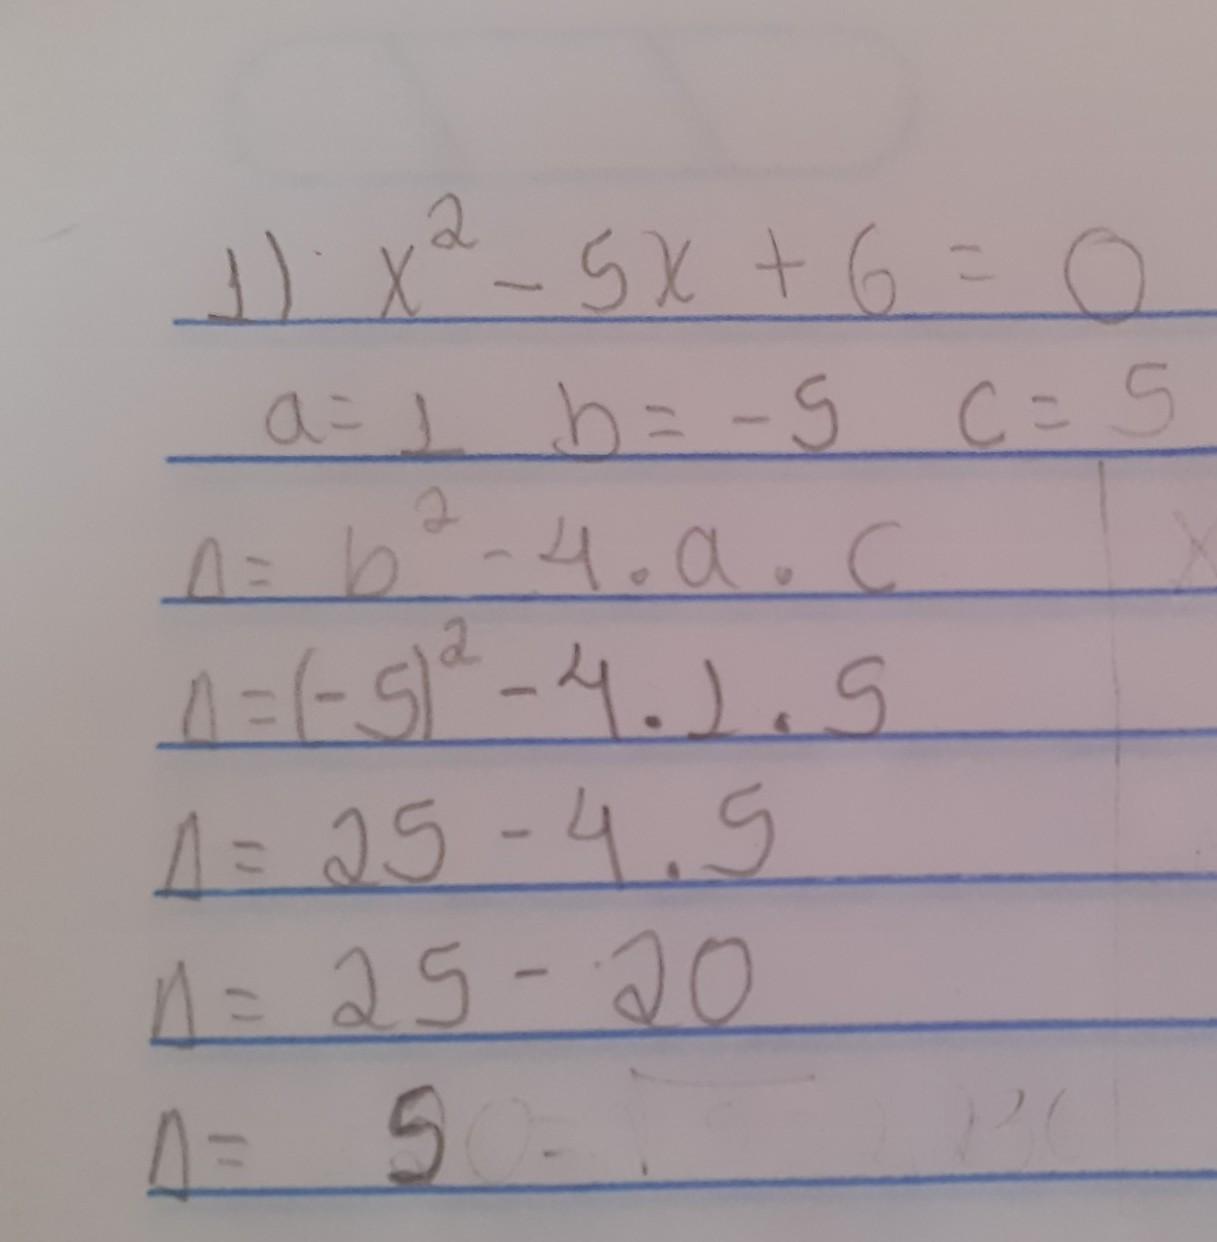 1) x² - 5x + 6 = 0
a = 1 b = -5 c = 5
Δ = b² - 4 . a . c
Δ = (-5)² - 4 . 1 . 5
Δ = 25 - 4 . 5
Δ = 25 - 20
Δ = 5